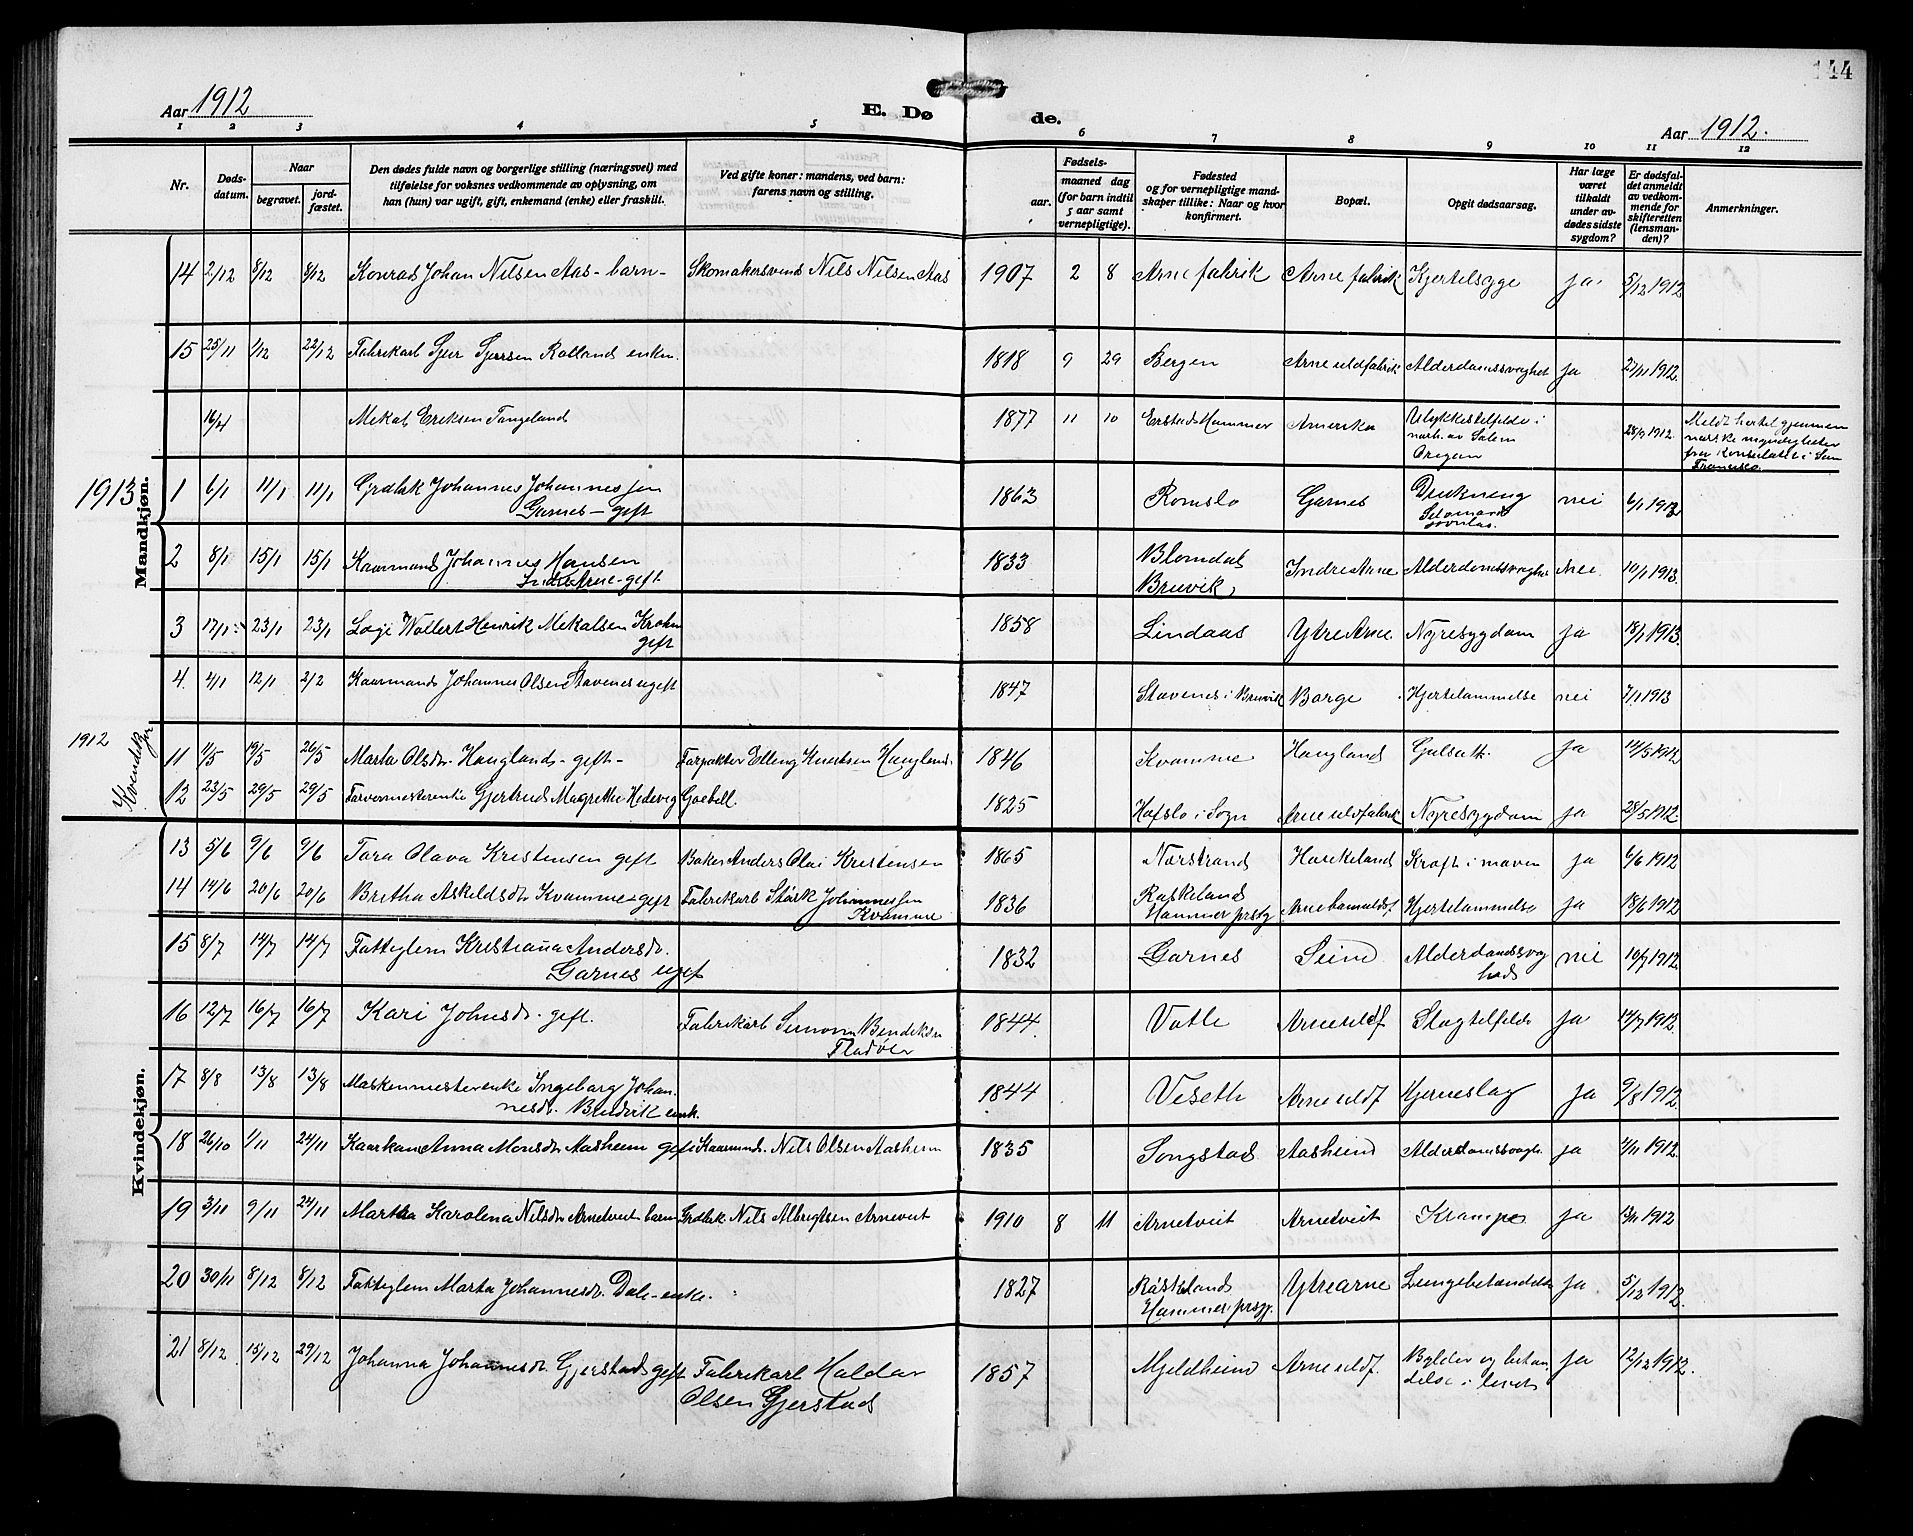 144
Aar 1912
E. Dø
de.
Aar 1912.
1 2 3 4 5 6 7 8 9 10 11 12
Nr. Døds-datum. Naar begravet. jord-fæstet. Den dødes fulde navn og borgerlige stilling (næringsvei) med tilføielse for voksnes vedkommende av oplysning, om han (hun) var ugift, gift, enkemand (enke) eller fraskilt. Ved gifte koner: mandens, ved barn: farens navn og stilling. Fødsels- aar. maaned dag (for barn indtil 5 aar samt vernepligtige). Fødested og for vernepligtige mand-skaper tillike: Naar og hvor konfirmert. Bopæl. Opgit dødsaarsag. Har læge været tilkaldt under av-dødes sidste sygdom? Er dødsfal-det anmeldt av vedkom-mende for skifteretten (lensman-den)? Anmerkninger.
14 2/12 8/12 8/12 Konrad Johan Nilsen Aas - barn - Skomakersvend Nils Nilsen Aas 1907 2 8 Arne fabrik Arne fabrik Kjertelsyge ja 5/12 1912
15 25/11 1/12 22/12 Fabrikarb Geir Geirsen Rolland enkm. 1818 9 29 Bergen Arne uldfabrik Alderdomssvaghet ja 27/11 1912.
Mekal Eriksen Tangeland 1877 11 10 Erstad Hammer Amerika Ulykkestilfelde i
nærh. av Salem
Oregon 28/9 1912. Meldt hertil gjennem
norske myndigheter
fra Konsulatet i San
Francisco.
1913
Mandkjøn.
1 6/1 11/1 11/1 Grdbk Johannes Johannessen
Garnes - gift 1863 Romslo Garnes Drukning
nei 6/1 1913
2 8/1 15/1 15/1 Kaarmand Johannes Hansen
Indre Arne - gift 1833 Blomdal
Bruvik Indre Arne Alderdomssvaghet Nei 10/1 1913.
3 17/1 23/1 23/1 Løgt Wollert Henrik Mekalsen Krohn
gift 1858 Lindaas Ytre Arne Nyresygdom ja 18/1 1913.
4. 4/1 12/1 2/2 Kaarmand Johannes Olsen Stavenes ugift 1847 Stavenes i Bruvik Borge Hjertelammelse nei 7/1 1913
1912
Kvendekjøn
11 11/5 19/5 26/5 Marta Olsdr. Haugland - gift - Forpakter Elling Knutsen Haugland. 1846 Kvamme Haugland Gulsott. ja 14/5 1912.
12 23/5 29/5 29/5 Farvermesterenke Gjertrud Magrethe Hedevig Goebell. 1825 Hafslo i Sogn Arne uldfabrik Nyresygdom ja 28/5 1912.
Kvindekjøn.
13 5/6 9/6 9/6 Tora Olava Kristensen gift Baker Anders Olai Kristensen 1865 Norstrand Haukeland Kræft i maven ja 6/6 1912
14 14/6 20/6 20/6 Britha Askildsdr Kvamme - gift Fabrikarb Størk Johannessen
Kvamme 1836 Raskeland
Hammer prstg Arne bomuldsf Hjertelammelse ja 18/6 1912
15 8/7 14/7 14/7 Fattiglem Kristiana Andersdr.
Garnes ugift 1832 Garnes Seim Alderdomssvag
heds nei 10/7 1912.
16 12/7 16/7 16/7 Kari Johnsdr. gift. Fabrikarb Simon Bendiksen
Fladøen 1844. Votle Arne uldf Slagtilfelde ja 14/7 1912.
17 8/8 13/8 13/8 Maskenmesterenke Ingeborg Johan-
nesdr. Bruvik enk. 1844 Viseth Arne uldf Hjerneslag ja 9/8 1912.
18 26/10 1/11 24/11 Kaarkone Anna Monsdr Aasheim gift Kaarmand. Nils Olsen Aasheim 1835 Songstad Aasheim Alderdomssvagh. ja 4/11 1912.
19 3/11 9/11 24/11 Martha Karolena Nilsdr Arnetveit barn Grdbk Nils Albregtsen Arneveit 1910 8 11 Arnetveit Arnetveit Krampe ja 13/11 1912
20 30/11 8/12 8/12 Fattiglem Marta Johannesdr. Dale - enke. 1827 Raskeland
Hammer prstg. Ytre arne Lungebetændelse ja. 5/12 1912.
21 8/12 15/12 29/12 Johanna Johannesdr Gjerstad gift Fabrikarb Haldor
Olsen Gjerstad 1857 Mjeldheim Arne uldf. Bylder og betæn
delse i livet ja 12/12 1912.